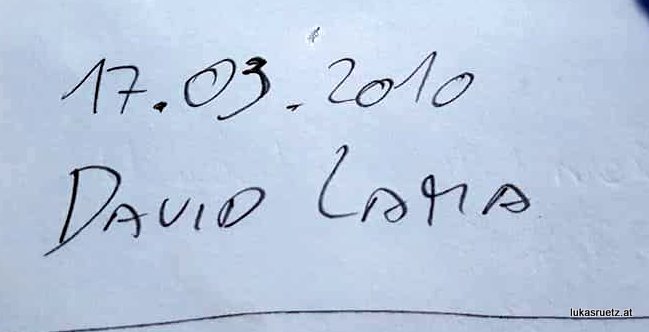 17.03.2010
DAVID LAMA
lukasruetz.at